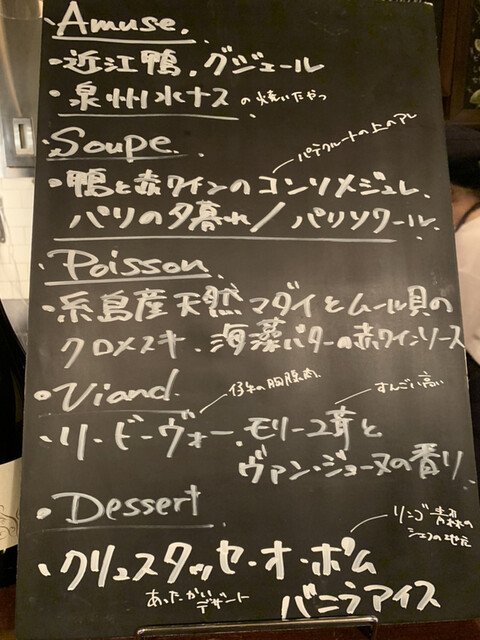 ・Amuse.
・近江鴨.グジェール
・泉州水ナス の焼いたやつ
・Soupe.
パテクルートの上のアレ
・鴨と赤ワインのコンソメジュレ.
パリの夕暮れ/パリソワール.
・Poisson.
・糸島産天然マダイとムール貝の
クロメスキ.海藻バターの赤ワインソース
・Viand.
仔牛の胸腺肉.
すんごい高い
・リ・ド・ヴォー.モリーユ茸と
ヴァン・ジョーヌの香り.
・Dessert
リンゴ 青森の
シェフの地元
・クリュスタッセ・オ・ポム
あったかい
デザート
バニラアイス